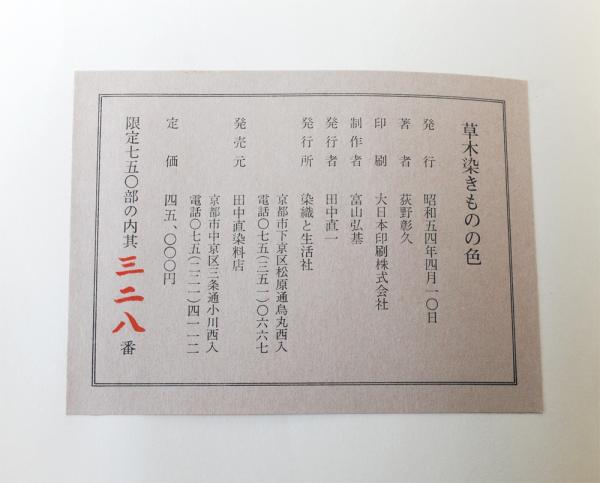 草木染きものの色
発行 昭和五四年四月一〇日
著者 荻野彰久
印刷 大日本印刷株式会社
制作者 富山弘基
発行者 田中直一
発行所 染織と生活社
京都市下京区松原通烏丸西入
電話〇七五(三五一)〇六六七
発売元 田中直染料店
京都市中京区三条通小川西入
電話〇七五(二二一)四一一二
定価 四五、〇〇〇円
限定七五〇部の内其 三二八 番